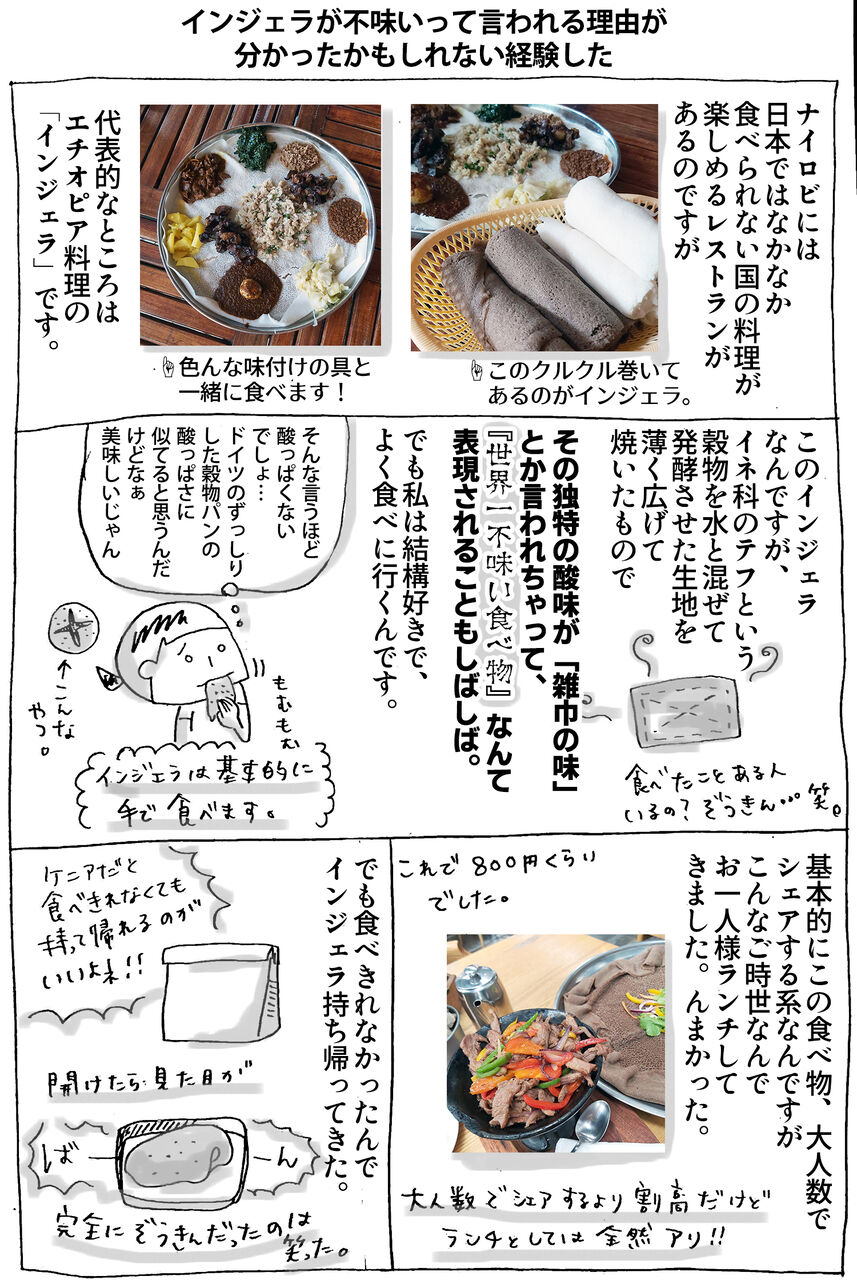 インジェラが不味いって言われる理由が
分かったかもしれない経験した
ナイロビには
日本ではなかなか
食べられない国の料理が
楽しめるレストランが
あるのですが
☝このクルクル巻いて
あるのがインジェラ。
☝色んな味付けの具と
一緒に食べます！
代表的なところは
エチオピア料理の
「インジェラ」です。
このインジェラ
なんですが、
イネ科のテフという
穀物を水と混ぜて
発酵させた生地を
薄く広げて
焼いたもので
食べたことある人
いるの？ぞうきん…笑。
その独特の酸味が「雑巾の味」
とか言われちゃって、
『世界一不味い食べ物』なんて
表現されることもしばしば。
でも私は結構好きで、
よく食べに行くんです。
そんな言うほど
酸っぱくない
でしょ…
ドイツのずっしり
した穀物パンの
酸っぱさに
似てると思うんだ
けどなぁ
美味しいじゃん
もむもむ
←こんな
やつ。
インジェラは基本的に
手で食べます。
基本的にこの食べ物、大人数で
シェアする系なんですが
こんなご時世なんで
お一人様ランチして
きました。んまかった。
これで800円くらい
でした。
大人数でシェアするより割高だけど
ランチとしては全然アリ!!
でも食べきれなかったんで
インジェラ持ち帰ってきた。
ケニアだと
食べきれなくても
持って帰れるのが
いいよね!!
開けたら見た目が
ばーん
完全にぞうきんだったのは
笑った。